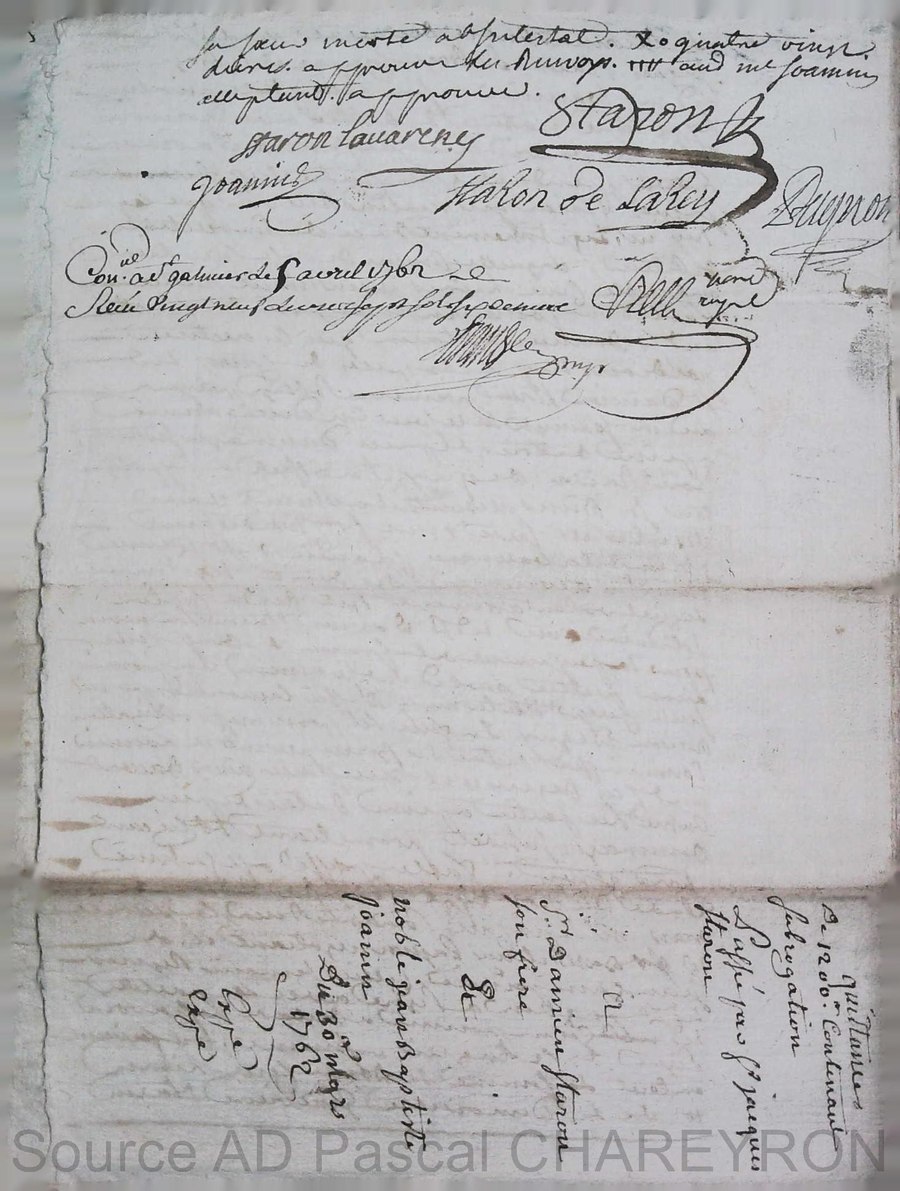 sa sœur morte abintestat. &o quatre vingt
dix. approuvé les Renvoys. audt me Joannin
acceptant. approuvé.
Staron
Staron Lavareney
Joannin
Staron de Larey
Pugnon
Con.lé a st galmier le 5 avril 1762
Receu Vingt neuf livres sept sols six deniers
noré
royal
quittance
De 1200tt Contenant
subrogation
Passé par sr jacques
staron
A
sr. Damien Staron
son frere
&
noble jean Baptiste
joannin
Du 30 mars
1762
Expé
Expé
Source AD Pascal CHAREYRON